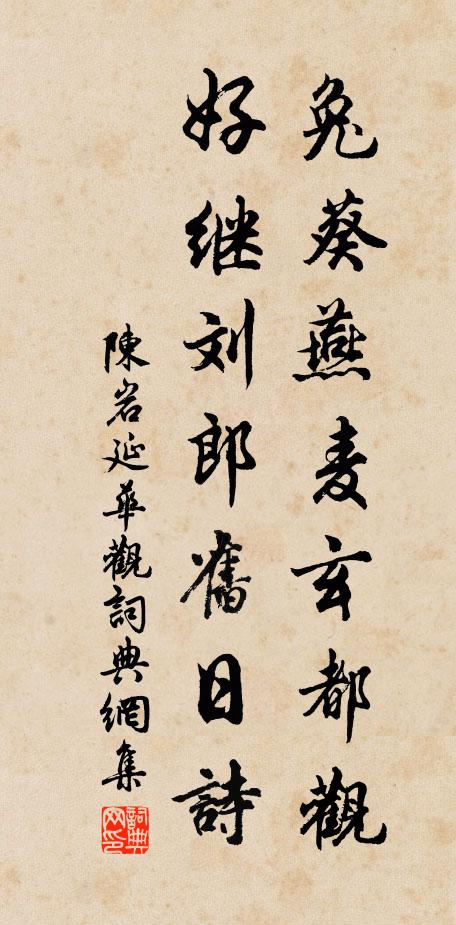 兔葵燕麦玄都觀
好继刘郎舊日詩
陳岩延華觀詞典網集
詞典网印